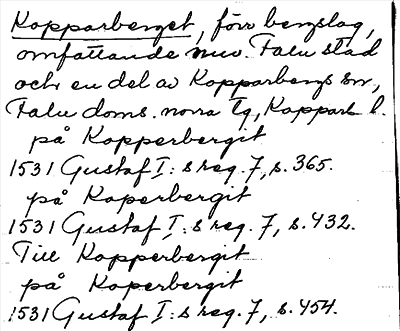 Kopparberget, förr bergslag,
omfattande nuv. Falu stad
och en del av Kopparbergs sn,
Falu doms. norra tg, Kopparb. l.
på Kopperbergit
1531 Gustaf I:s reg. 7, s. 365.
på Koperbergit
1531 Gustaf I:s reg. 7, s. 432.
Till Kopperbergit
på Koperbergit
1531 Gustaf I:s reg. 7, s. 454.